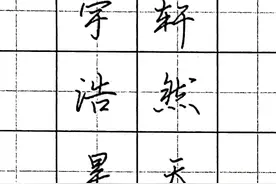 宇轩
浩然
天